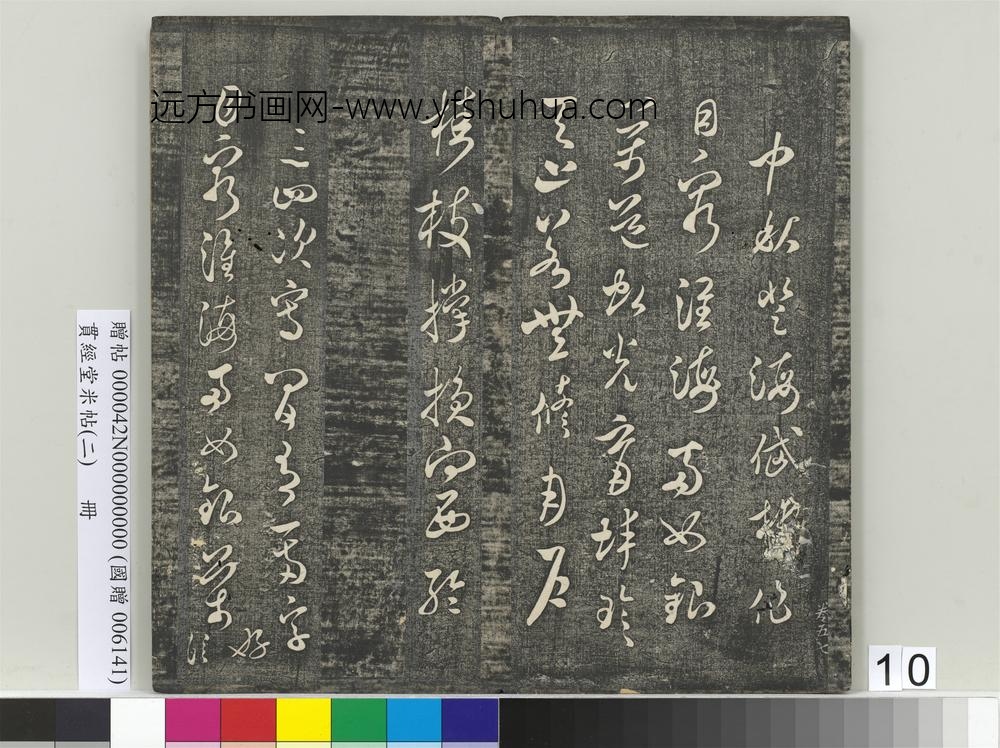 中秋登海岱樓作
目窮淮海兩如銀
萬道虹光育蚌珍
天上若無修月戶
桂枝撐損向西輪
三四次寫間有一兩字好
目窮淮海兩如銀萬
卷五
远方书画网-www.yfshuhua.com
贈帖 000042N000000000 (國贈 006141)
貫經堂米帖(二) 冊
10